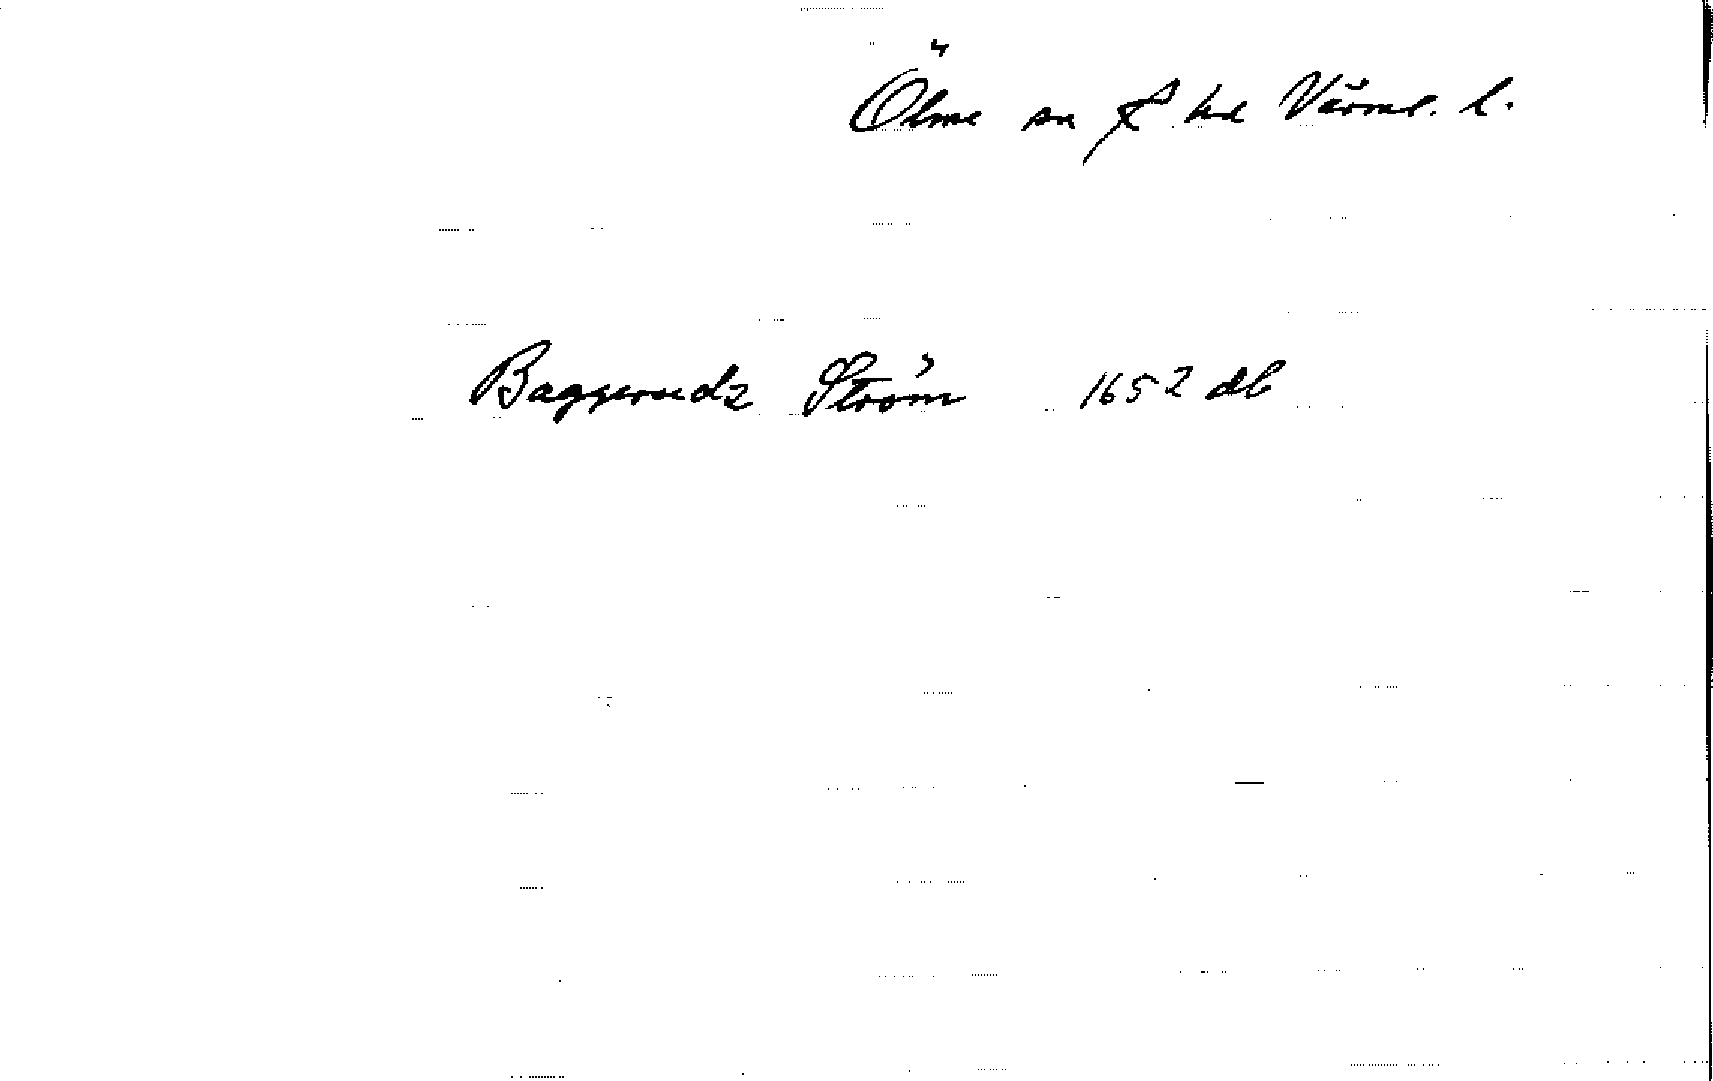 Ölme sn f hd Värml. l.
Baggerudz Ström 1652 db